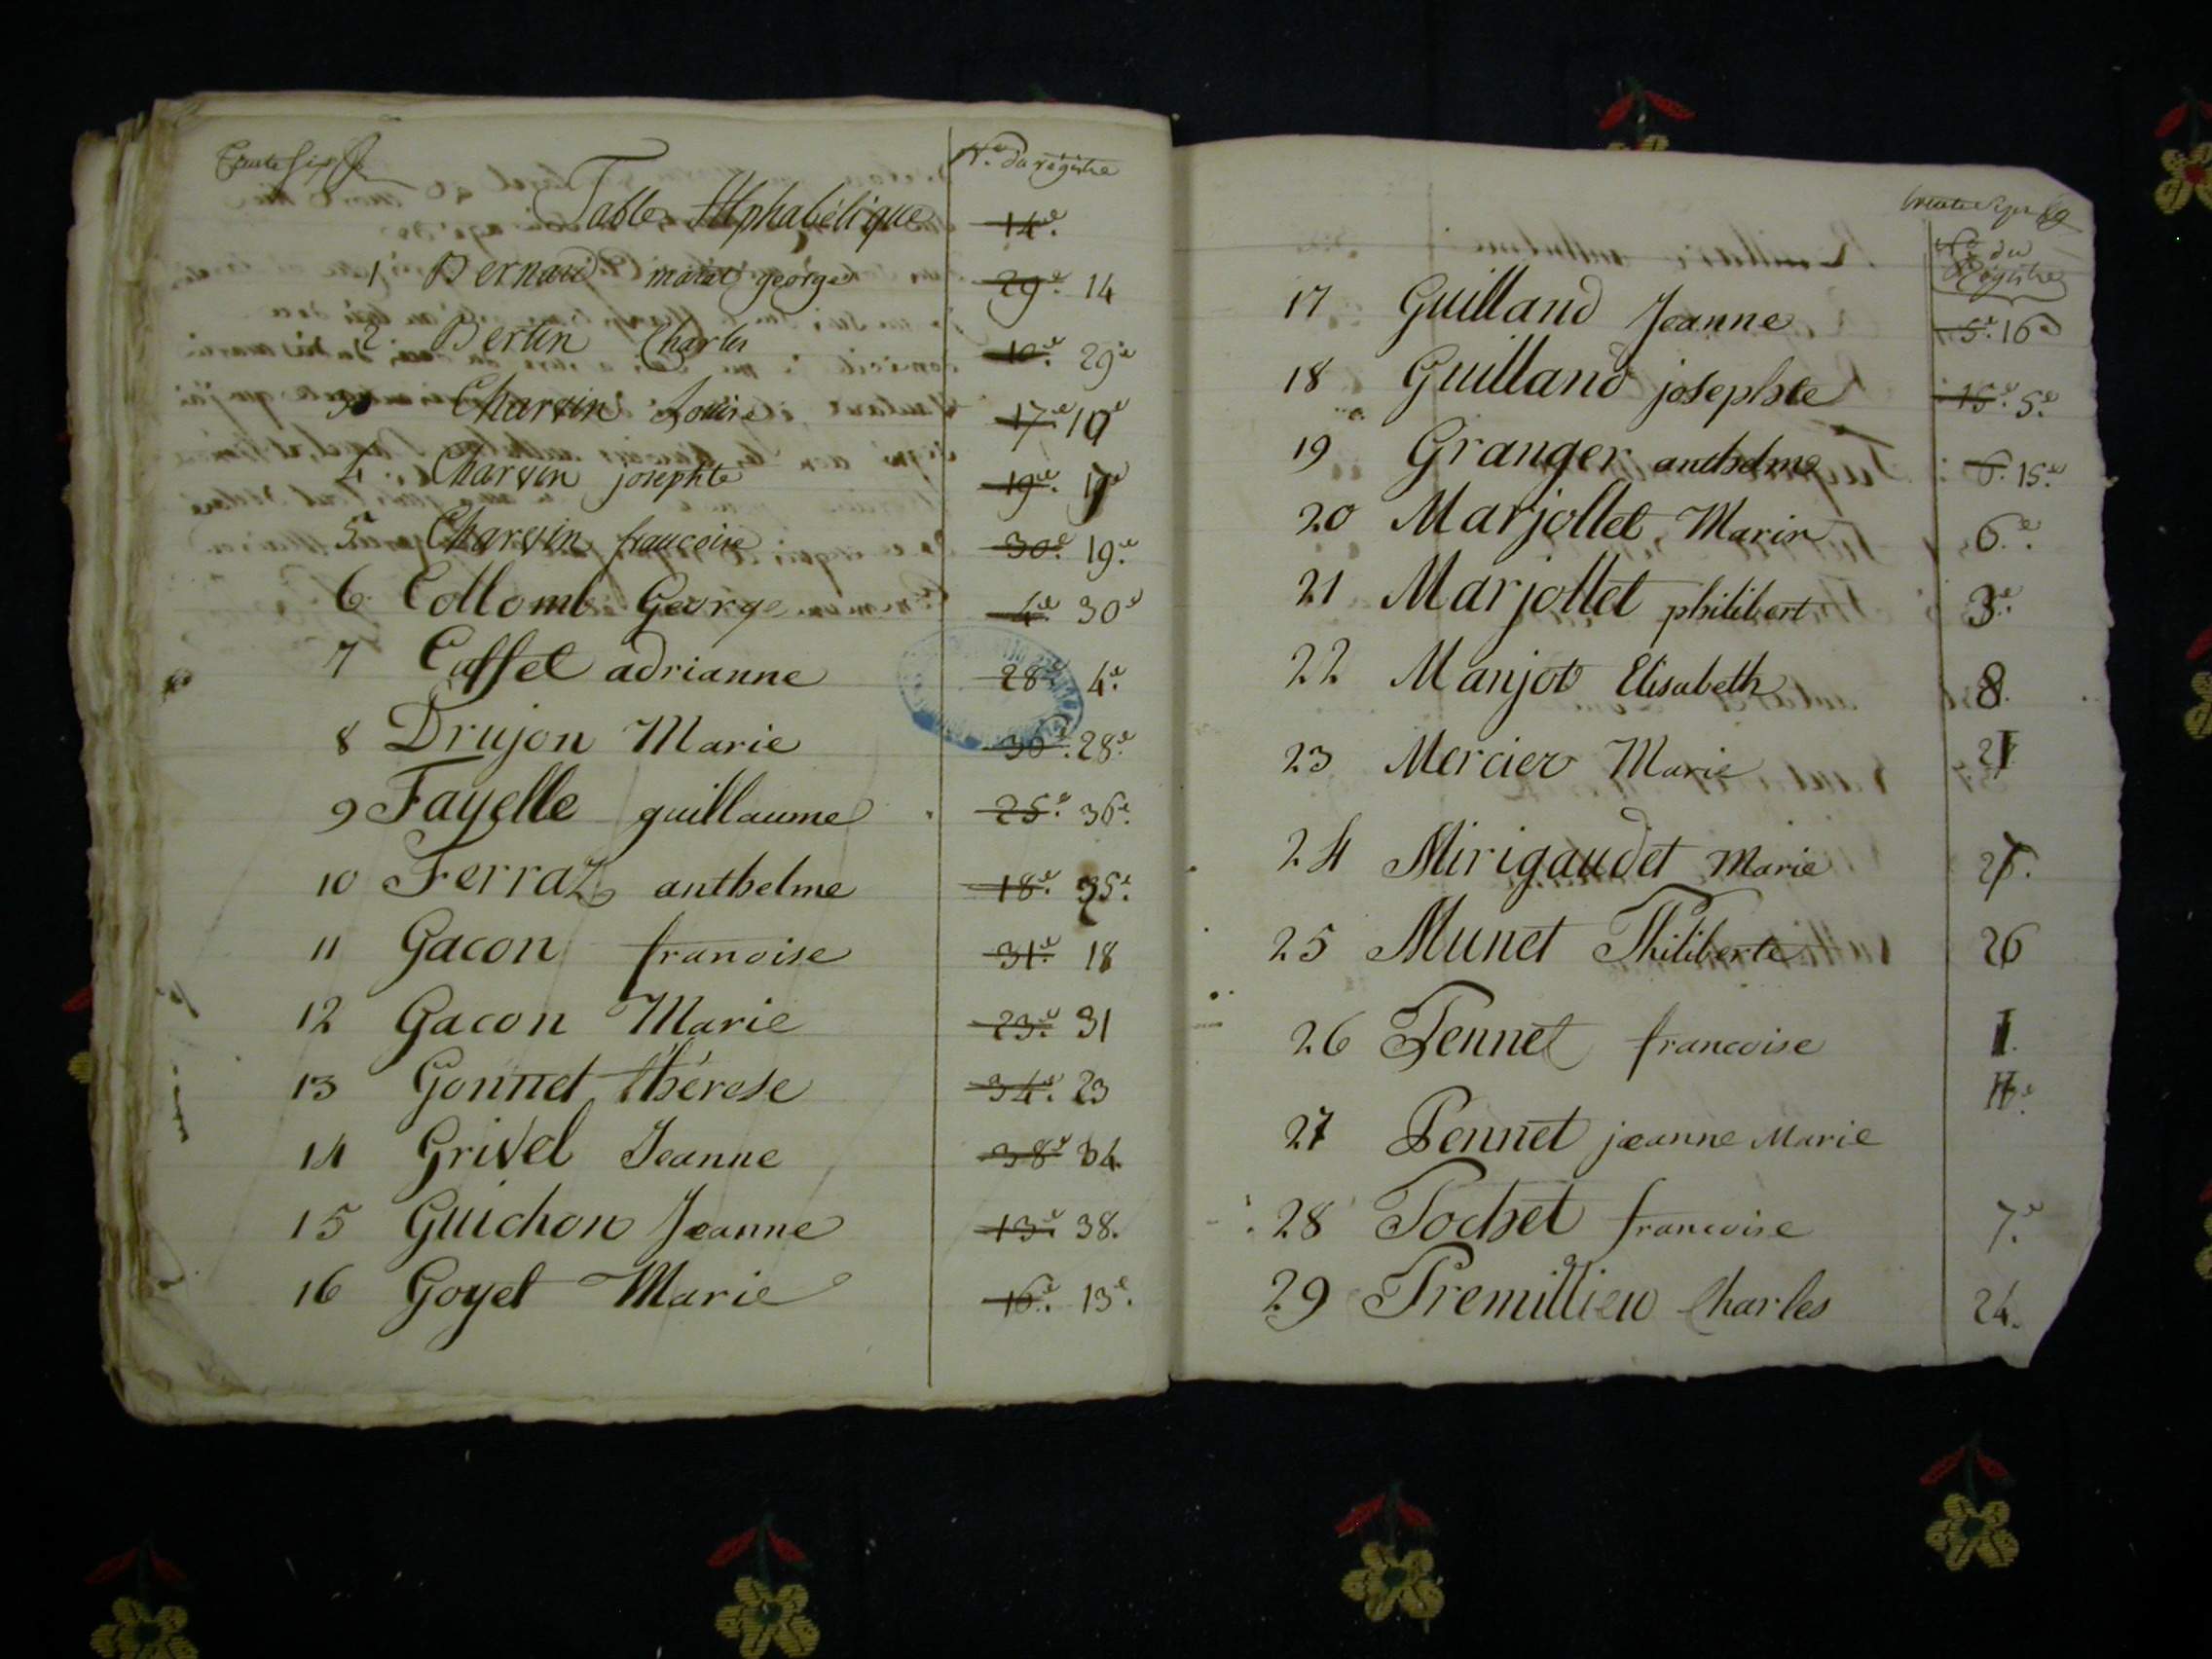 Trente six
N.º du régistre
Table Alphabétique
14.e
1 Bernard marat george 29.e 14
2 Bertin Charles 10.e 29.e
3 Charvin Louise 17.e 10e
4 Charvin josephte 19.e 17e
5 Charvin francoise 30.e 19.e
6 Collomb George 4.e 30e
7 Cuffet adrianne 28.e 4.e
8 Drujon Marie 36.e 28.e
9 Fayelle guillaume 25.e 36.e
10 Ferraz anthelme 18.e 35.e
11 Gacon franoise 31.e 18
12 Gacon Marie 23.e 31
13 Gonnet thérese 34.e 23
14 Grivel Jeanne 38.e 34.
15 Guichon Jeanne 13.e 38.
16 Goyet Marie 16.e 13e.
trente
N.º du
Régistre
17 Guilland Jeanne 5.e 16e
18 Guilland josephte 15.e 5.e
19 Granger anthelme 6. 15.e
20 Marjollet Marin 6.e
21 Marjollet philibert 3.e
22 Manjot Elisabeth 8.
23 Mercier Marie
24 Mirigaudet Marie
25 Munet Philiberte 26
26 Pennet francoise
27 Pennet jeanne Marie
28 Pochet francoise 7.e
29 Premillieu Charles 24.